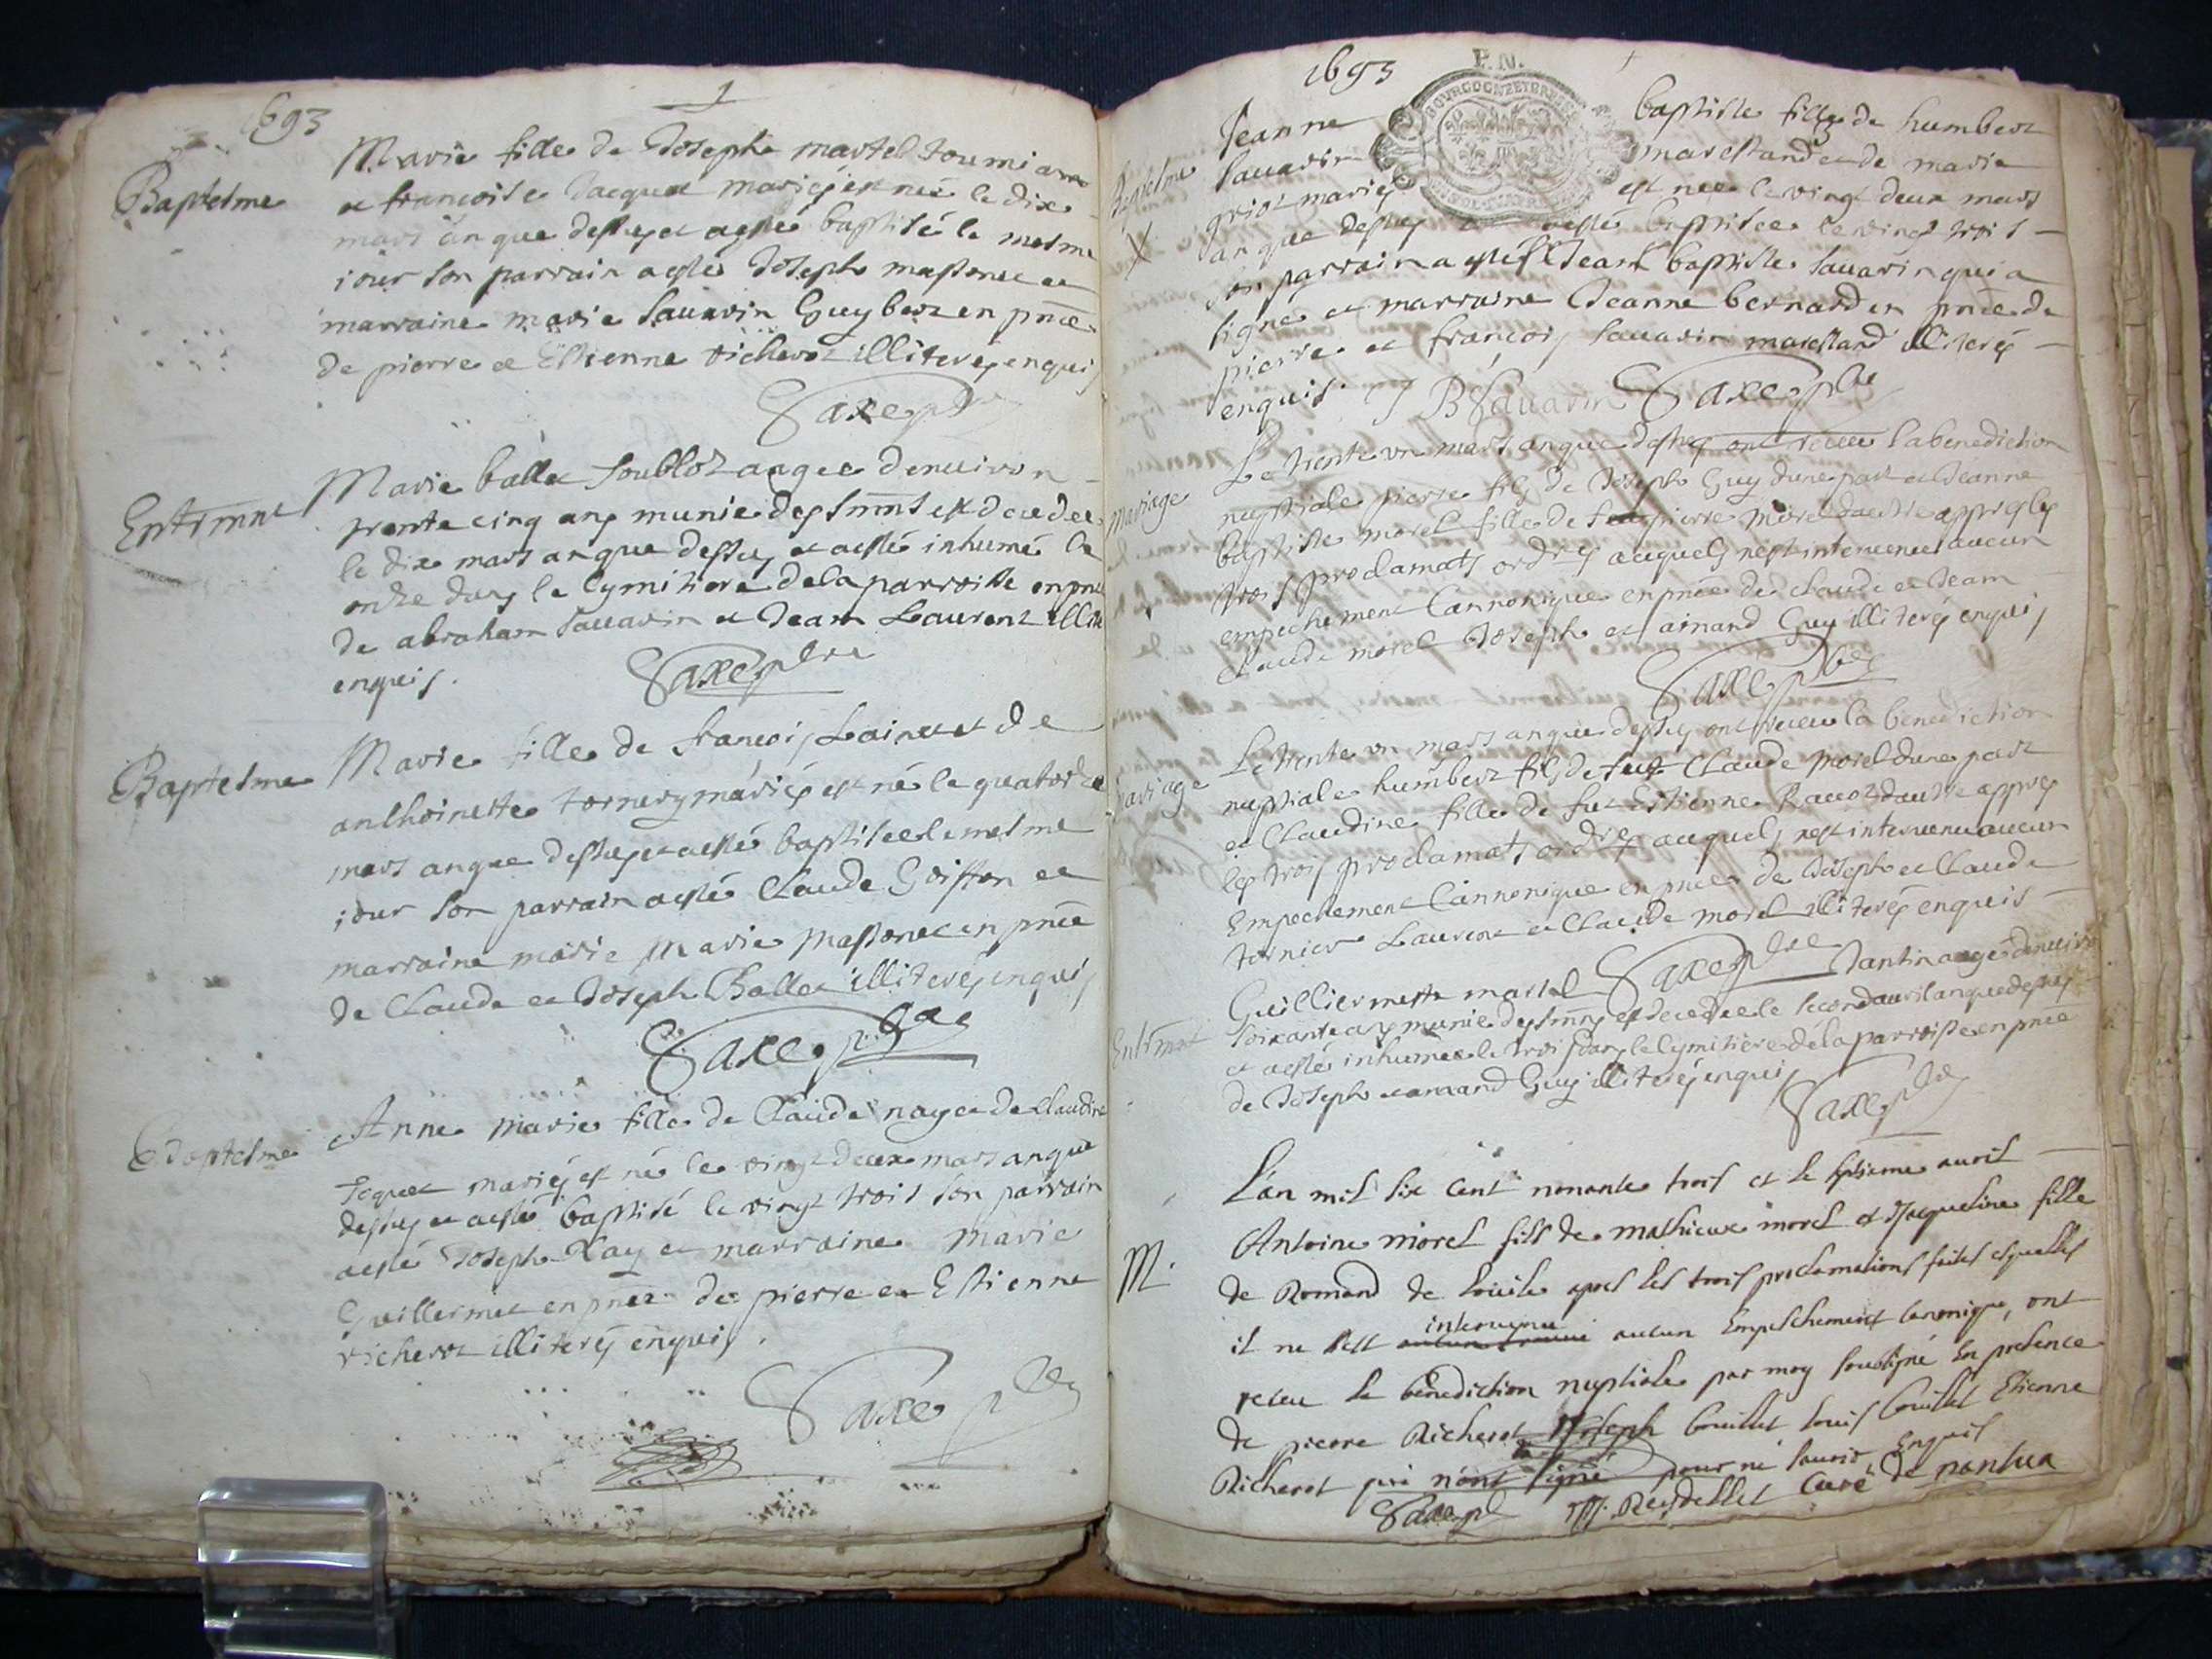 1693
1
Baptesme
Marie fille de Joseph martel
et francoise Jacquet mariés est né le dix
mars an que dessus et a esté baptisé le mesme
iour son parrain a esté Joseph massonet et
marraine marie Sauarin Guybert en pnce
de pierre et Estienne richerot illiterés enquis
Saxe pbre
Entermnt
Marie ballet Soublot aagee denuiron
trente cinq ans munie des smnts est decedee
le dix mars an que dessus et a esté inhumé le
onze dans le Cymitiere de la parroisse en pnce
de abraham Sauarin et Jean Laurent illite
enquis.
Saxe pbre
Baptesme
Marie fille de francois Lainet et de
anthoinette mariés est né le quatorze
mars an que dessus et a esté baptisee le mesme
iour son parrain a esté Claude Goiffon et
marraine marie Marie massonet en pnce
de Claude et Joseph Ballet illiterés enquis
Saxe pbre
Baptesme
Anne Marie fille de Claude nay et de Claudine
mariés est né le vingt deux mars an que
dessus et a esté baptisé le vingt trois son parrain
a esté Joseph Nay et marraine Marie
Guillermet en pnce de pierre et Estienne
richerot illiterés enquis.
Saxe pbre
1693
P. N.
Baptesme
Jeanne baptiste fille de humbert
Sauarin marchand et de marie
priot mariés est nee le vingt deux mars
an que dessus et a esté baptisee le vingt trois
son parrain a esté Sr Jean baptiste Sauarin qui a
signe et marraine Jeanne bernard en pnce de
pierre et francois Sauarin marchand illiterés
enquis. J B Sauarin Saxe pbre
mariage
Le trente vn mars an que dessus ont receu la benediction
nuptiale pierre fils de Joseph Guy dune part et Jeanne
baptiste morel fille de feu pierre Morel dautre appres les
trois proclamats ordres auquels nest interuenu aucun
empechement Cannonique en pnce de claude et Jean
Claude morel Joseph et ainard Guy illiterés enquis
Saxe pbre
mariage
Le trente vn mars an que dessus ont receu la benediction
nuptiale humbert fils de feu Claude Morel dune part
et Claudine fille de fut Estienne Rauot dautre appres
les trois proclamats ordres auquels nest interuenu aucun
Empechement Cannonique en pnce de Joseph et Claude
tornier Laurent et Claude morel illiterés enquis
Saxe pbre
Entermnt
Guilliermette martel Jantin aagée denuiron
soixante ans munie des smnts est decedee le second auril an que dessus
et a esté inhumee le trois dans le Cymitiere de la parroisse en pnce
de Joseph et amand Guy illiterés enquis
Saxe pbre
M.
L'an mil six cent nonante trois et le septieme auril
Antoine morel fils de mathieux morel et Jacqueline fille
de Romand de apres les trois proclamations faites esquelles
il ne s'est interuenu aucun Empeschement canonique, ont
receu la benediction nuptiale par moy soubsigné En presence
de pierre Richerot Joseph louis Etienne
Richerot qui n'ont signé pour ne sauoir Enquis
Saxe pb Reydellet Curé de nantua